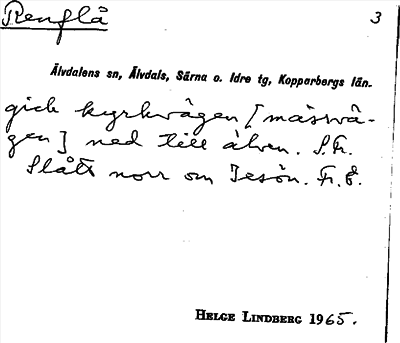 Renflå
3
Älvdalens sn, Älvdals, Särna o. Idre tg, Kopparbergs län.
gick kyrkvägen [mässvä-
gen] ned till älven. S.Fr.
Slått norr om Tesön. Fr.E.
HELGE LINDBERG 1965.